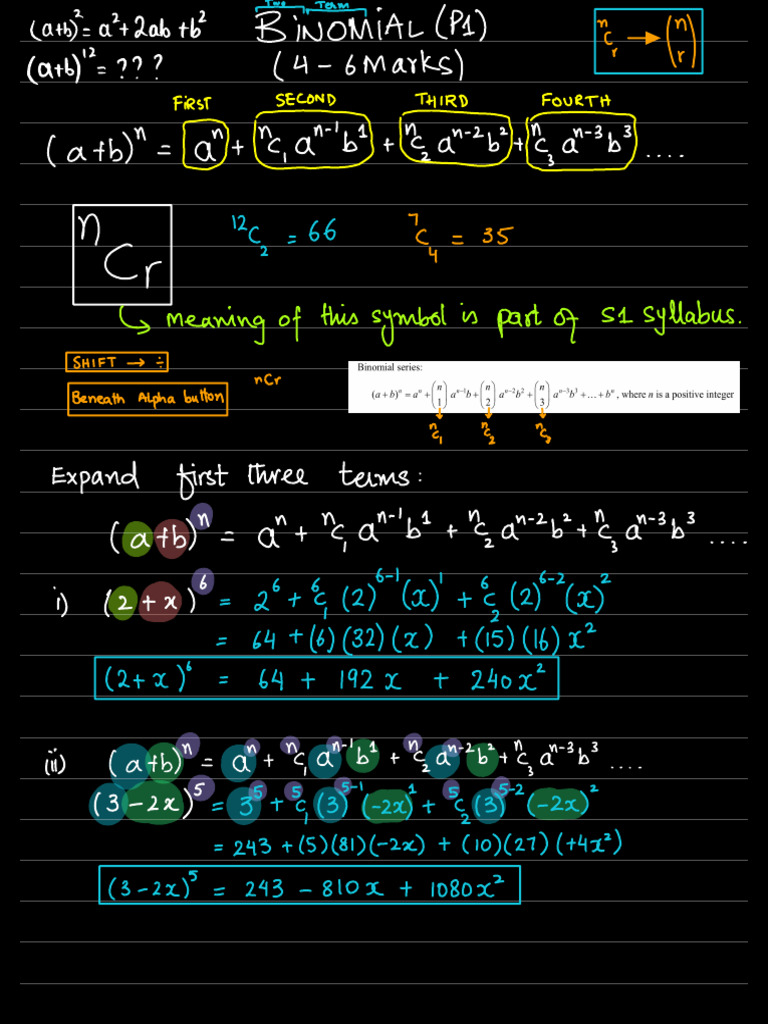 (a+b)² = a² + 2ab + b²
Two Term
BINOMIAL (P1)
ⁿCᵣ → (n r)
(a+b)¹² = ? ? ?
(4 – 6 Marks)
FIRST SECOND THIRD FOURTH
(a+b)ⁿ = aⁿ + ⁿC₁ aⁿ⁻¹ b¹ + ⁿC₂ aⁿ⁻² b² + ⁿC₃ aⁿ⁻³ b³ ....
ⁿCᵣ
¹²C₂ = 66 ⁷C₄ = 35
↳ meaning of this symbol is part of S1 syllabus.
SHIFT → ÷
Beneath Alpha button
nCr
Binomial series:
(a + b)ⁿ = aⁿ + (n 1) aⁿ⁻¹b + (n 2) aⁿ⁻²b² + (n 3) aⁿ⁻³b³ + … + bⁿ, where n is a positive integer
ⁿC₁ ⁿC₂ ⁿC₃
Expand first three terms:
(a+b)ⁿ = aⁿ + ⁿC₁ aⁿ⁻¹ b¹ + ⁿC₂ aⁿ⁻² b² + ⁿC₃ aⁿ⁻³ b³ ....
i) (2 + x)⁶ = 2⁶ + ⁶C₁ (2)⁶⁻¹ (x)¹ + ⁶C₂ (2)⁶⁻² (x)²
= 64 + (6)(32)(x) + (15)(16)x²
(2+x)⁶ = 64 + 192x + 240x²
(ii) (a+b)ⁿ = aⁿ + ⁿC₁ aⁿ⁻¹ b¹ + ⁿC₂ aⁿ⁻² b² + ⁿC₃ aⁿ⁻³ b³ ....
(3 – 2x)⁵ = 3⁵ + ⁵C₁ (3)⁵⁻¹ (-2x)¹ + ⁵C₂ (3)⁵⁻² (-2x)²
= 243 + (5)(81)(-2x) + (10)(27)(+4x²)
(3 – 2x)⁵ = 243 – 810x + 1080x²